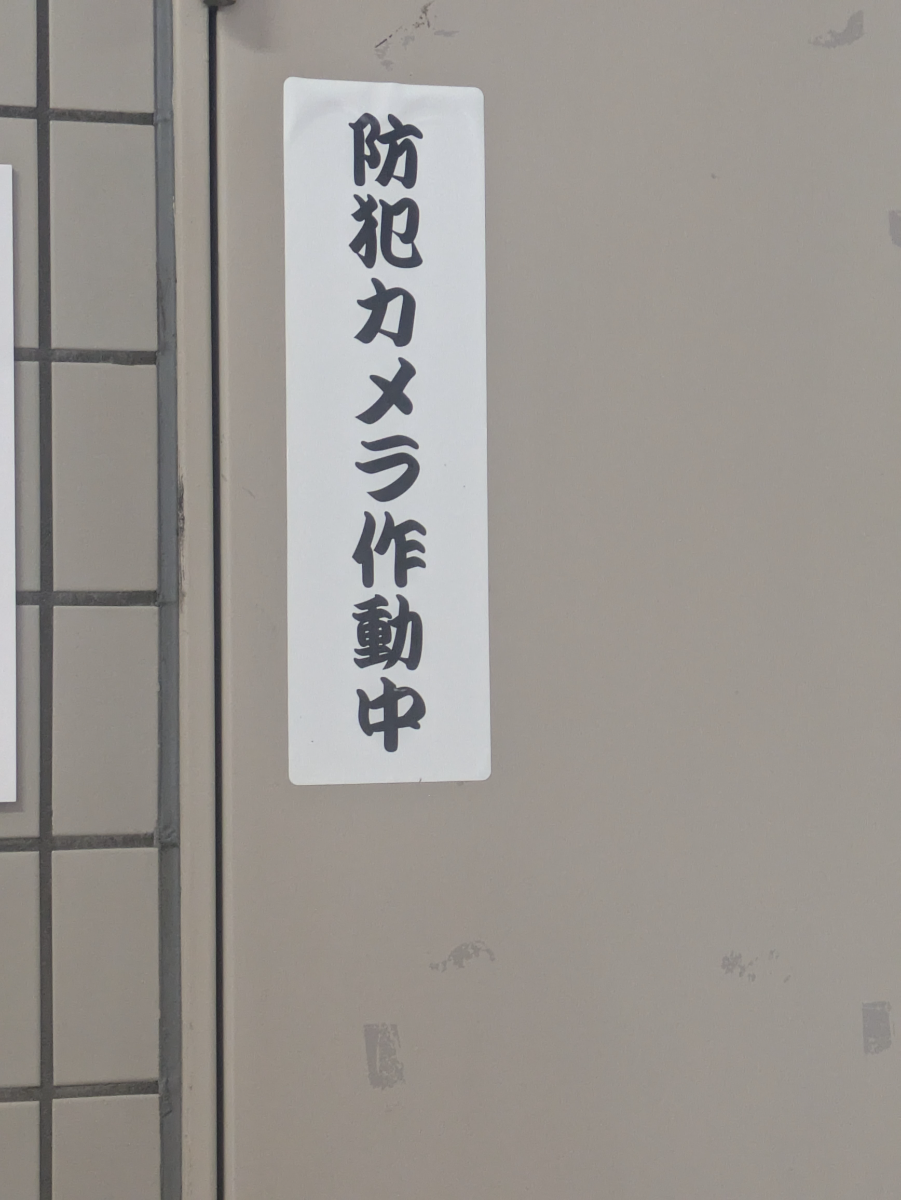 防犯カメラ作動中